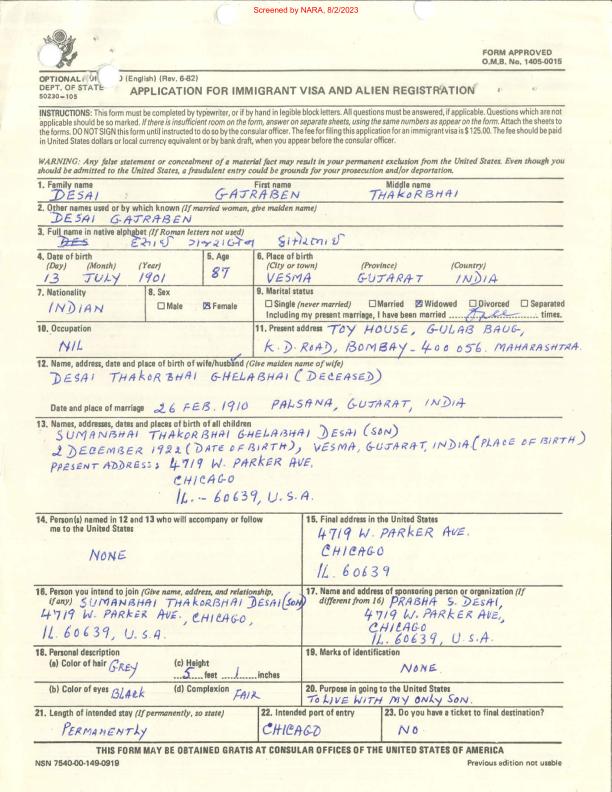 Screened by NARA, 8/2/2023
FORM APPROVED
O.M.B. No, 1405-0015
OPTIONAL (English) (Rev. 6-82)
DEPT. OF STATE
50230-105
APPLICATION FOR IMMIGRANT VISA AND ALIEN REGISTRATION
INSTRUCTIONS: This form must be completed by typewriter, or if by hand in legible block letters. All questions must be answered, if applicable. Questions which are not
applicable should be so marked. If there is insufficient room on the form, answer on separate sheets, using the same numbers as appear on the form. Attach the sheets to
the forms. DO NOT SIGN this form until instructed to do so by the consular officer. The fee for filing this application for an immigrant visa is $125.00. The fee should be paid
in United States dollars or local currency equivalent or by bank draft, when you appear before the consular officer.
WARNING: Any false statement or concealment of a material fact may result in your permanent exclusion from the United States. Even though you
should be admitted to the United States, a fraudulent entry could be grounds for your prosecution and/or deportation.
1. Family name First name Middle name
DESAI GAJRABEN THAKORBHAI
2. Other names used or by which known (If married woman, give maiden name)
DESAI GAJRABEN
3. Full name in native alphabet (If Roman letters not used)
DES દેસાઈ
4. Date of birth 5. Age 6. Place of birth
(Day) (Month) (Year) (City or town) (Province) (Country)
13 JULY 1901 87 VESMA GUJARAT INDIA
7. Nationality 8. Sex 9. Marital status
INDIAN ☐ Male ☒ Female ☐ Single (never married) ☐ Married ☒ Widowed ☐ Divorced ☐ Separated
Including my present marriage, I have been married times.
10. Occupation 11. Present address TOY HOUSE, GULAB BAUG,
NIL K. D. ROAD, BOMBAY-400 056. MAHARASHTRA.
12. Name, address, date and place of birth of wife/husband (Give maiden name of wife)
DESAI THAKORBHAI GHELABHAI (DECEASED)
Date and place of marriage 26 FEB. 1910 PALSANA, GUJARAT, INDIA
13. Names, addresses, dates and places of birth of all children
SUMANBHAI THAKORBHAI GHELABHAI DESAI (SON)
2 DECEMBER 1922 (DATE OF BIRTH), VESMA, GUJARAT, INDIA (PLACE OF BIRTH)
PRESENT ADDRESS: 4719 W. PARKER AVE.
CHICAGO
IL.- 60639, U.S.A.
14. Person(s) named in 12 and 13 who will accompany or follow
me to the United States
NONE
15. Final address in the United States
4719 W. PARKER AVE.
CHICAGO
IL. 60639
16. Person you intend to join (Give name, address, and relationship,
if any) SUMANBHAI THAKORBHAI DESAI (SON)
4719 W. PARKER AVE., CHICAGO,
IL. 60639, U.S.A.
17. Name and address of sponsoring person or organization (If
different from 16) PRABHA S. DESAI,
4719 W. PARKER AVE.,
CHICAGO
IL. 60639, U.S.A.
18. Personal description
(a) Color of hair GREY (c) Height
5 feet 1 inches
(b) Color of eyes BLACK (d) Complexion FAIR
19. Marks of identification
NONE.
20. Purpose in going to the United States
TO LIVE WITH MY ONLY SON.
21. Length of intended stay (If permanently, so state) 22. Intended port of entry 23. Do you have a ticket to final destination?
PERMANENTLY CHICAGO NO.
THIS FORM MAY BE OBTAINED GRATIS AT CONSULAR OFFICES OF THE UNITED STATES OF AMERICA
NSN 7540-00-149-0919 Previous edition not usable